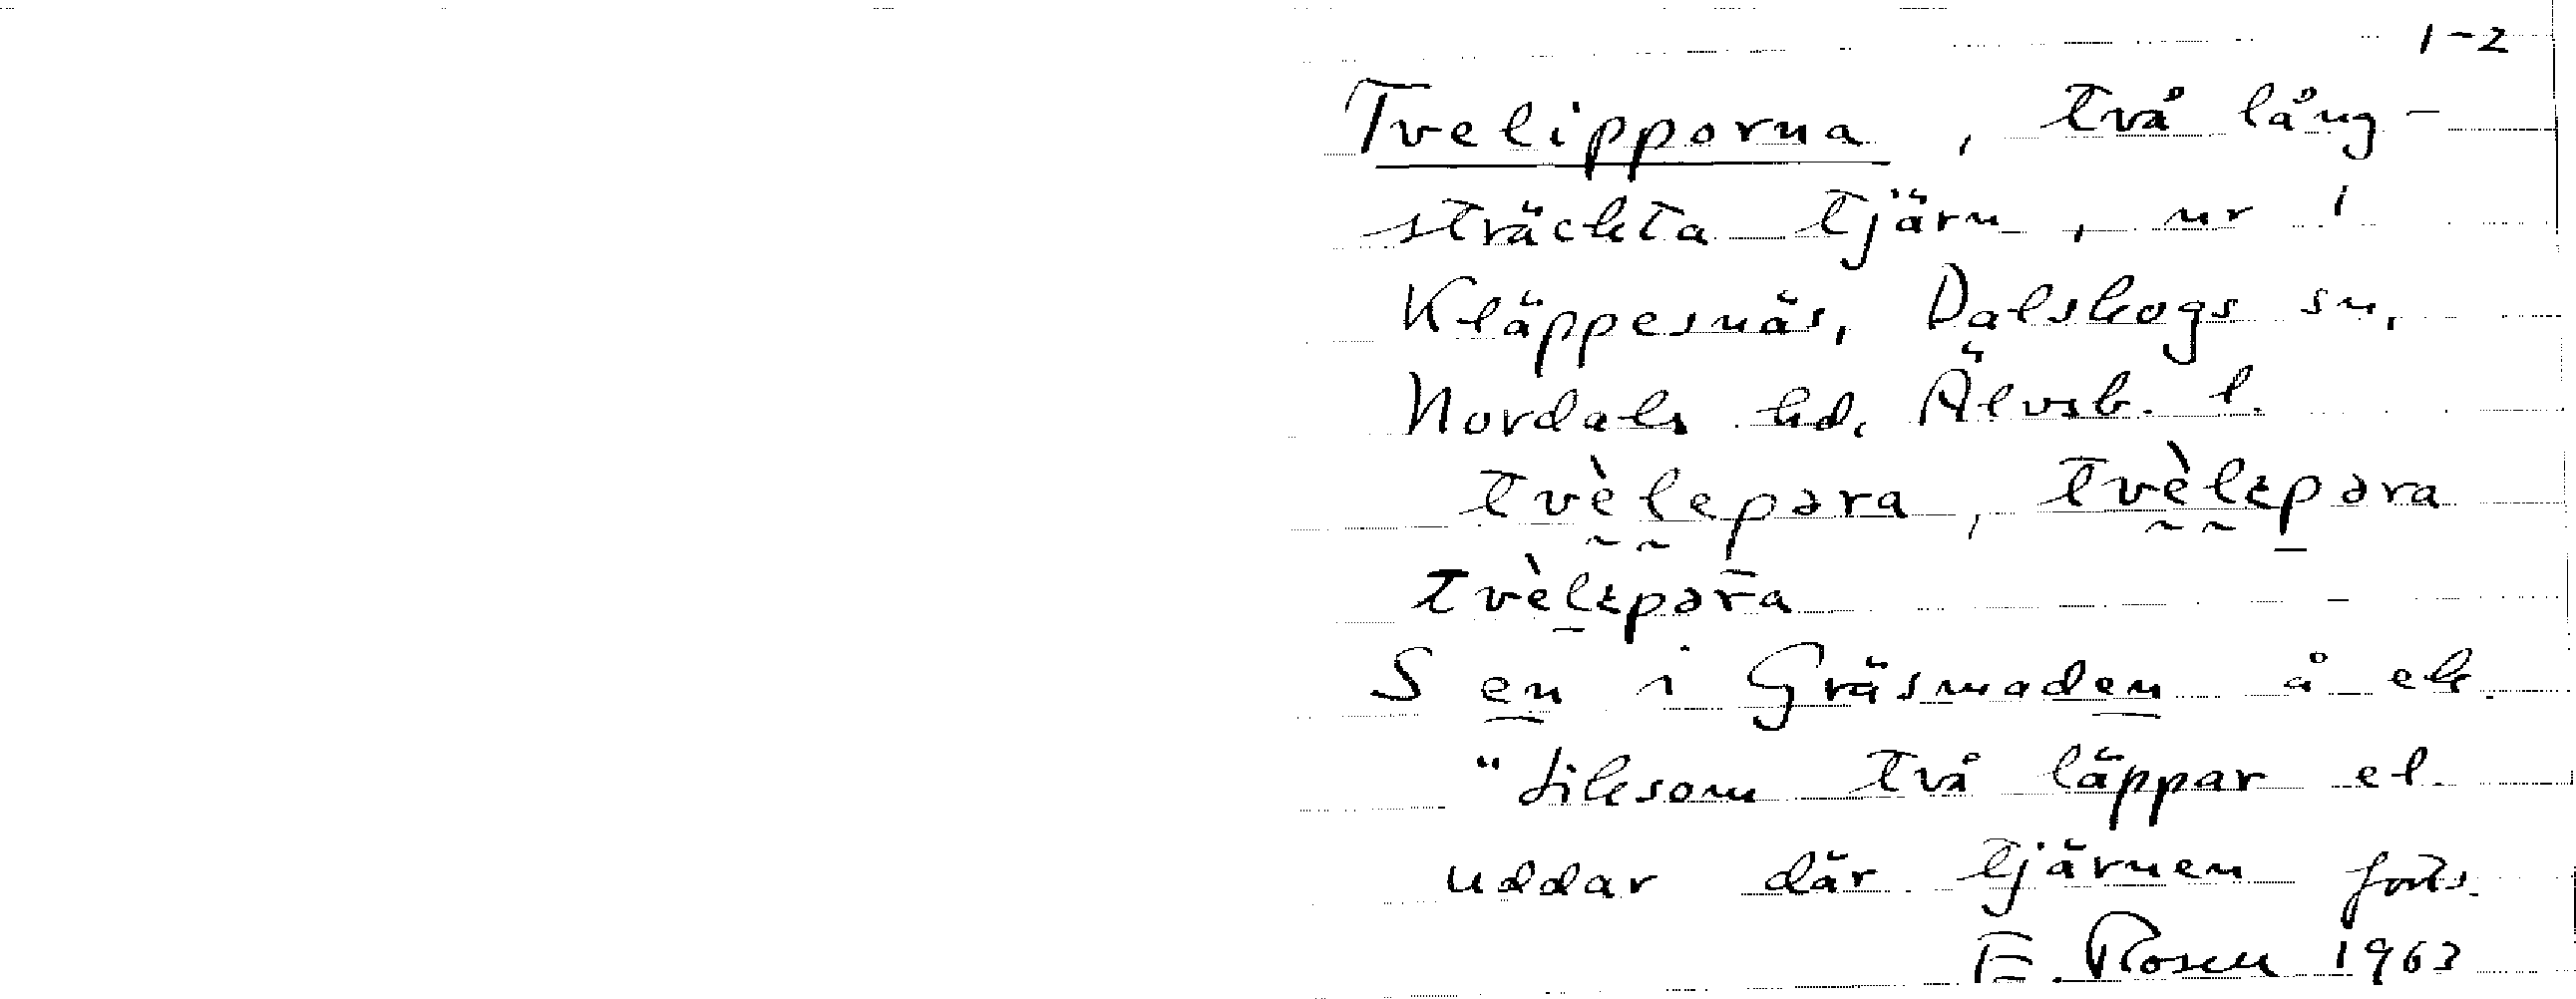 1-2
Tvelipporna, två lång-
sträckta tjärn, nr 1
Kläppesnäs, Dalskogs sn,
Nordals hd, Älvsb. l.
tvèlepəra, tvèlɛpəra
tvèlɛpəra
S en i Gräsmaden å ek.
"Liksom två läppar el.
uddar där tjärnen forts.
E. Rosen 1963